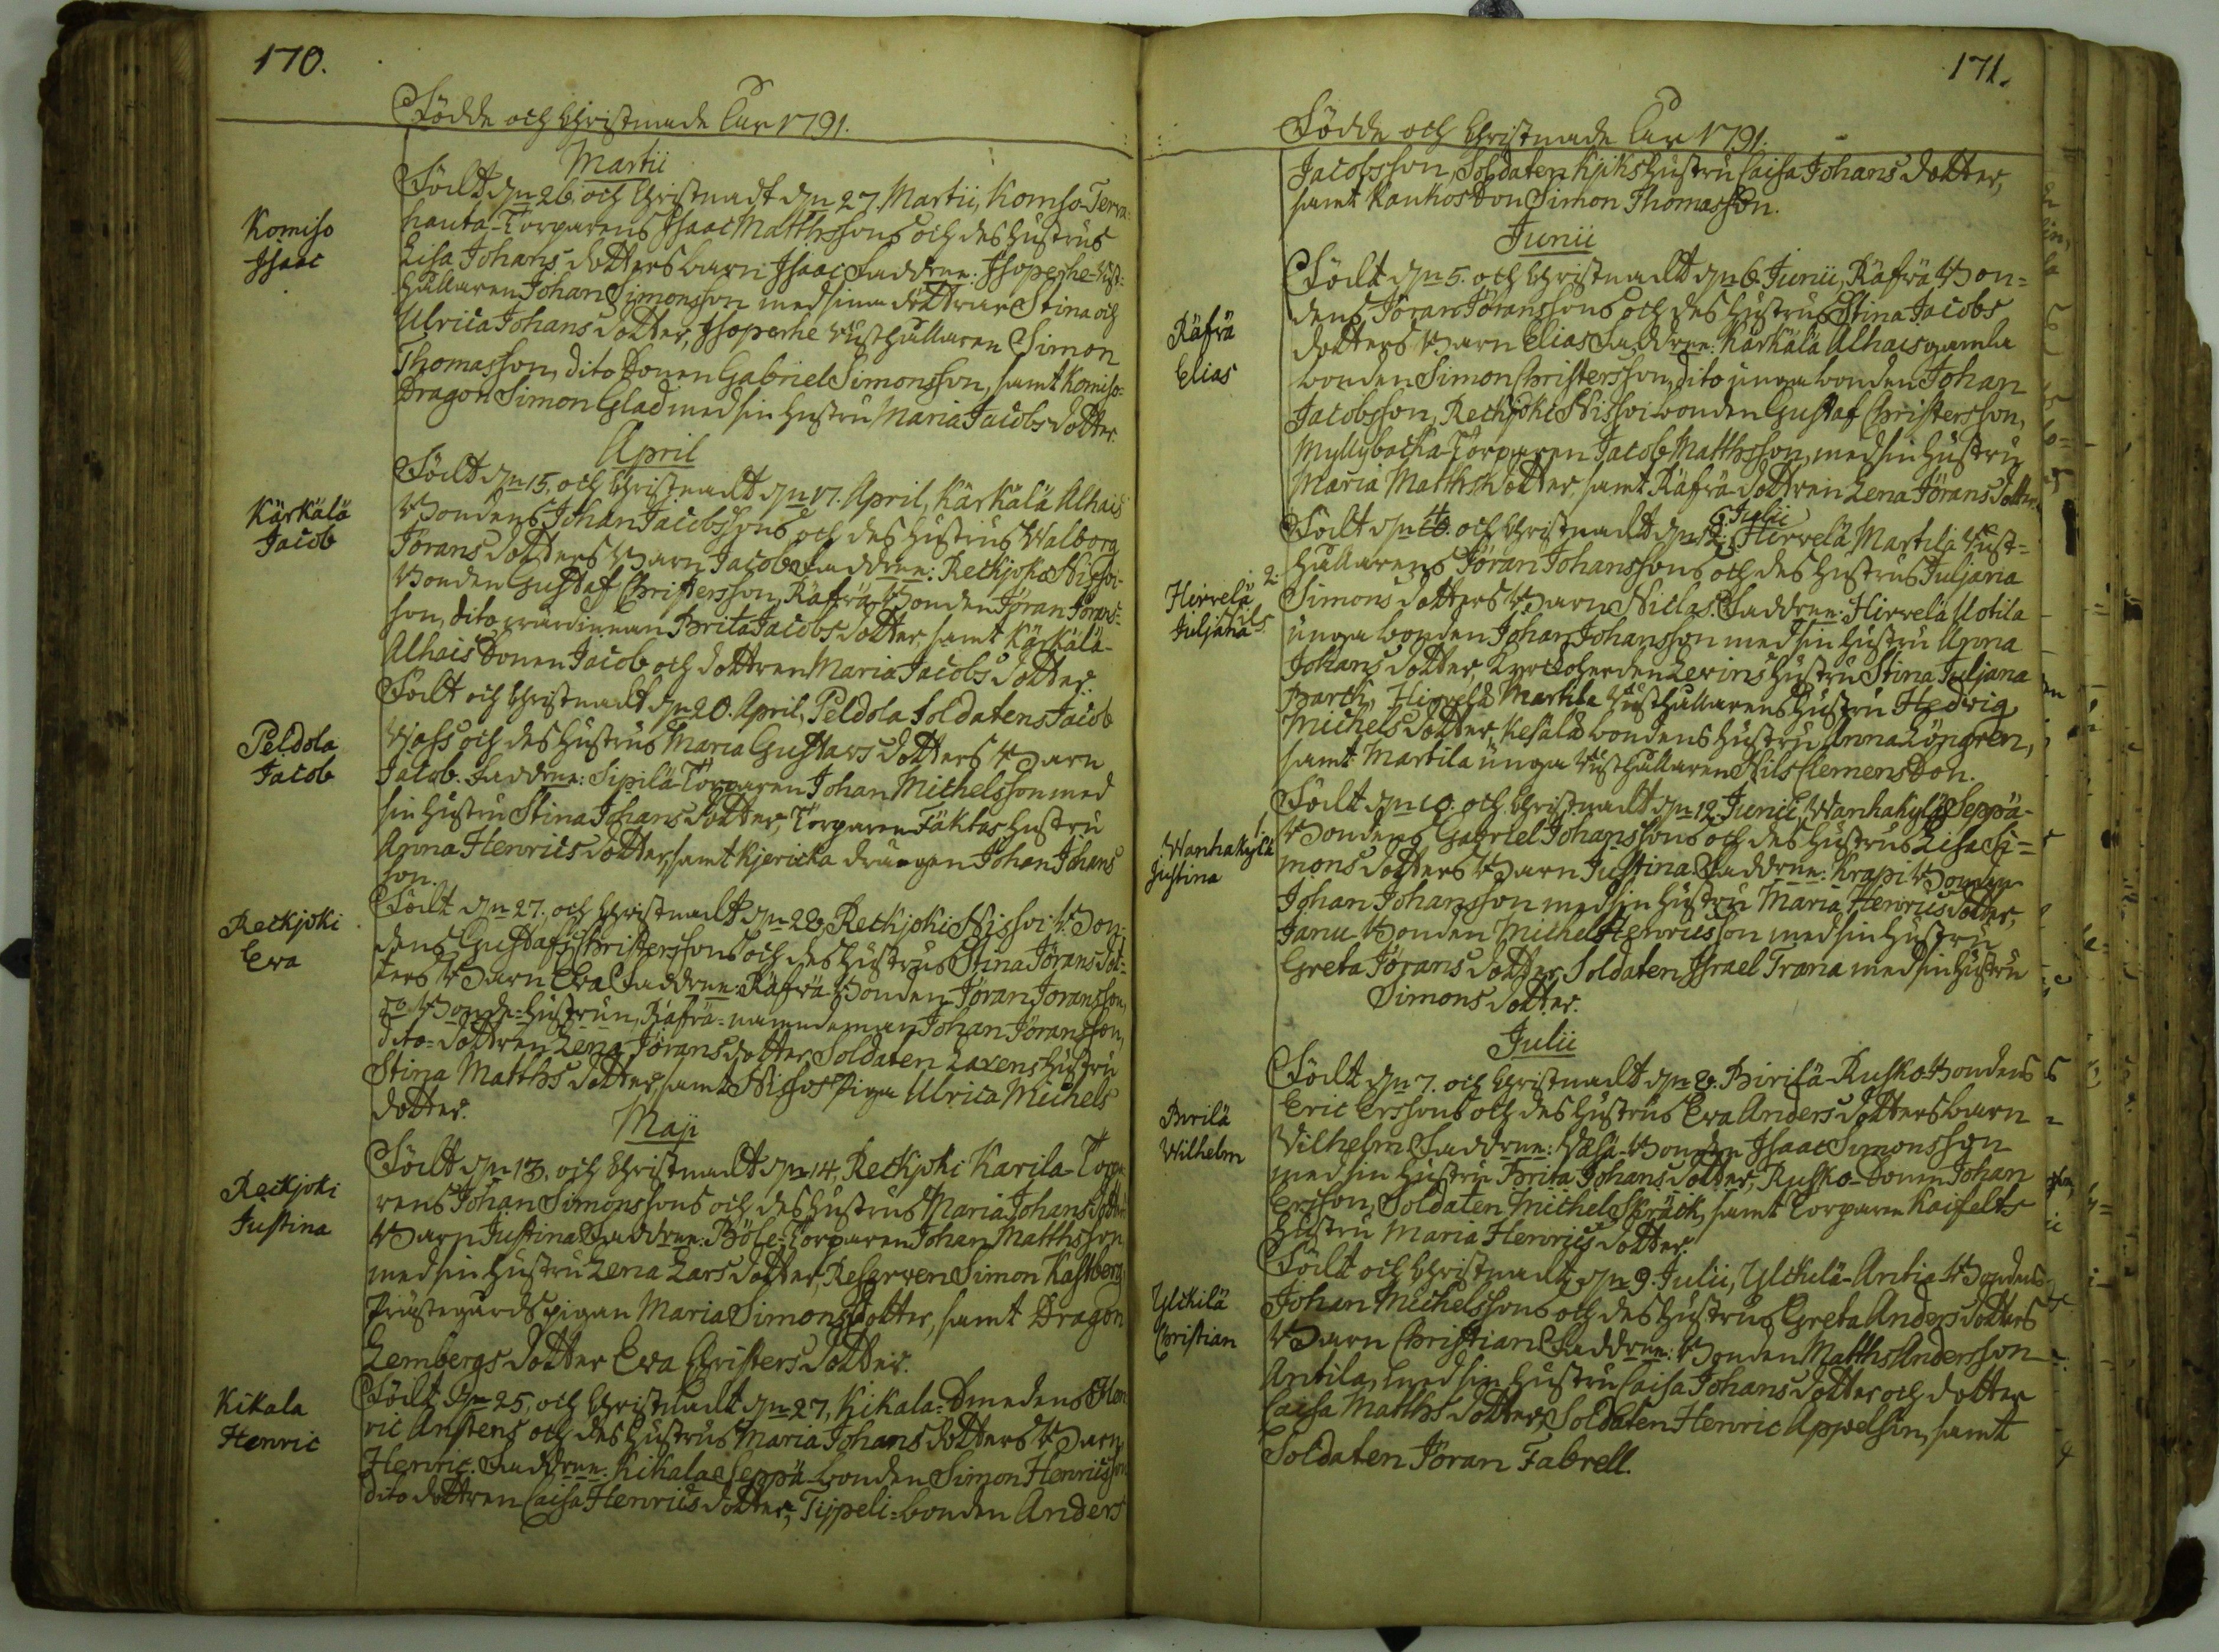 170.
Födde och Christnade Åhr 1791.
Martii
Komiso
Isaac
Född dn 26. och Christnadt dn 27. Martii, Komiso-Terra-
hauta-Torparens Isaac Matthssons och des hustrus
Lisa Johans dotters barn Isaac Faddrne: Isoperhe Rust-
hållaren Johan Simonsson med sina döttrar Stina och
Ulrica Johans dotter, Isoperhe Rusthållaren Simon
Thomasson, dito Sonen Gabriel Simonsson, samt Komiso-
Dragon Simon Glad med sin hustru Maria Jacobs dotter.
April
Kärkälä
Jacob
Född dn 15. och Christnadt dn 17. April, Kärkälä Alhais
Bondens Johan Jacobssons och des hustrus Walborg
Jörans dotters Barn Jacob Faddrne: Reckjoki Nissoi-
Bonden Gustaf Christersson, Räfvä Bonden Jöran Jörans-
son, dito wärdinnan Brita Jacobs dotter, samt Kärkälä-
Alhais Sonen Jacob och dottren Maria Jacobs dotter.
Peldola
Jacob
Född och Christnadt dn 20. April, Peldola Soldatens Jacob
och des hustrus Maria Gustavs dotters Barn
Jacob. Faddrne: Sipilä-Torparen Johan Michelsson med
sin hustru Stina Johans dotter, Torparen Fäktas hustru
Anna Henrics dotter, samt Kjericka drängen Johan Johans
son.
Reckjoki
Eva
Född dn 27. och Christnadt dn 28, Reckjoki Nissoi Bon-
dens Gustaf Christerssons och des hustrus Stina Jörans dot-
ters Barn Eva Faddrne: Räfvä-Bonden Jöran Joransson,
Bonde-hustrun, Räfvä-nämndeman Johan Jöransson,
dito-dottren Lena Jörans dotter Soldaten Laxens hustru
Stina Matths dotter, samt Nissos Piga Ulrica Michels
dotter.
Maji
Reckjoki
Justina
Född dn 13. och Christnadt dn 14, Reckjoki Karila-Torpa
rens Johan Simonssons och des hustrus Maria Johans dotters
Barn Justina Faddrne: Böle-Torparen Johan Matthsson
med sin hustru Lena Lars dotter, Reserven Simon Kastberg
Prästegårds pigan Maria Simons dotter, samt Dragon
Lembergs dotter Eva Christers dotter.
Kikala
Henric
Född dn 25. och Christnadt dn 27, Kikala-Smedens Hen
ric Anstens och des hustrus Maria Johans dotters Barn
Henric. Faddrne. Kikala Seppä-bonden Simon Henricsson
dito dottren Caisa Henrics dotter, Tijpeli-bonden Anders
171.
Födde och Christnade Åhr 1791.
Jacobsson, Soldaten Kjiks hustru Caisa Johans dotter,
samt Kankos Son Simon Thomasson.
Junii
Räfvä
Elias
Född dn 5. och Christnadt dn 6. Junii, Räfvä Bon-
dens Jöran Jöranssons och des hustrus Stina Jacobs
dotters Barn Elias Faddrne: Kärkälä Alhais gamla
bonden Simon Christersson, dito unga bonden Johan
Jacobsson, Reckjoki Nissoi-bonden Gustaf Christersson,
Myllybacka-Torparen Jacob Matthsson, med sin hustru
Maria Matths dotter, samt Räfvä dottren Lena Jörans dotter.
Hirvelä 2.
Juljana
Född dn och Christnadt dn 6. Julii Hirvelä Martila Rust-
hållarens Jöran Johanssons och des hustrus Juljana
Simons dotters Barn Niclas. Faddrne: Hirvelä Uotila
unga bonden Johan Johansson med sin hustru Anna
Johans dotter, Kyrckoherden Levins hustru Stina Juljana
Barck, Hirvelä Martila Rusthållarens hustru Hedvig
Michels dotter, Kesälä bondens hustru Anna Löngren,
samt Martila unga Rusthållaren Nils Clemensson.
Wanhakylä 1.
Justina
Född dn 10. och Christnadt dn 12. Junii, Wanhakylä Seppä-
Bondens Gabriel Johanssons och des hustrus Lisa Si-
mons dotters Barn Justina Faddrne: Krapi Bonden
Johan Johansson med sin hustru Maria Henrics dotter,
Janu Bonden Michel Henricsson med sin hustru
Greta Jörans dotter, Soldaten Israel Trana med sin hustru
Simons dotter.
Julii
Birilä
Wilhelm
Född dn 7. och Christnadt dn 8. Birilä Rusko-Bondens
Eric Erssons och des hustrus Eva Anders dotters barn
Vilhelm Faddrne: Väsä-Bonden Isaac Simonsson
med sin hustru Brita Johans dotter, Rusko-Sonen Johan
Ersson, Soldaten Michel Skräck, samt Torparen Kaifelts
hustru Maria Henrics dotter.
Ylckilä
Christian
Född och Christnadt dn 9. Julii, Ylckilä-Antia Bondens
Johan Michelssons och des hustrus Greta Anders dotters
Barn Christian Faddrne: Bonden Matths Andersson
Antila, med sin hustru Caisa Johans dotter och dotter
Caisa Matths dotter, Soldaten Henric Appelsin, samt
Soldaten Jöran Fabrell.